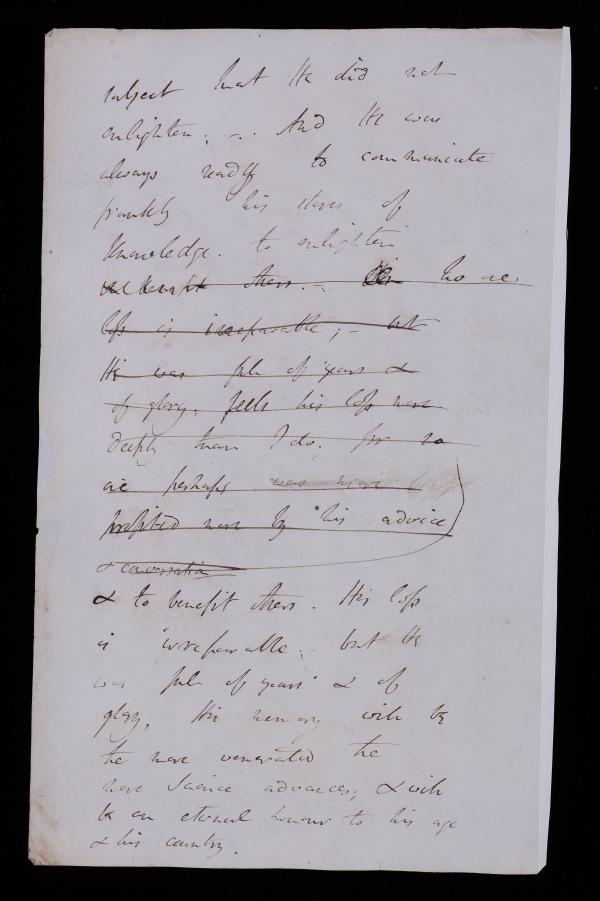 subject that He did not
enlighten; -. And He was
always ready to communicate
frankly his stores of
Knowledge. to enlighten
& benefit others. - no one
loss is irreparable; - but
He was full of years &
of glory. feels his loss more
deeply than I do. for no
one perhaps
profited more by his advice
& conversation
& to benefit others. His loss
is irreparable; but He
was full of years & of
glory. His memory will be
the more venerated the
more Science advances; & will
be an eternal honour to his age
& his country.